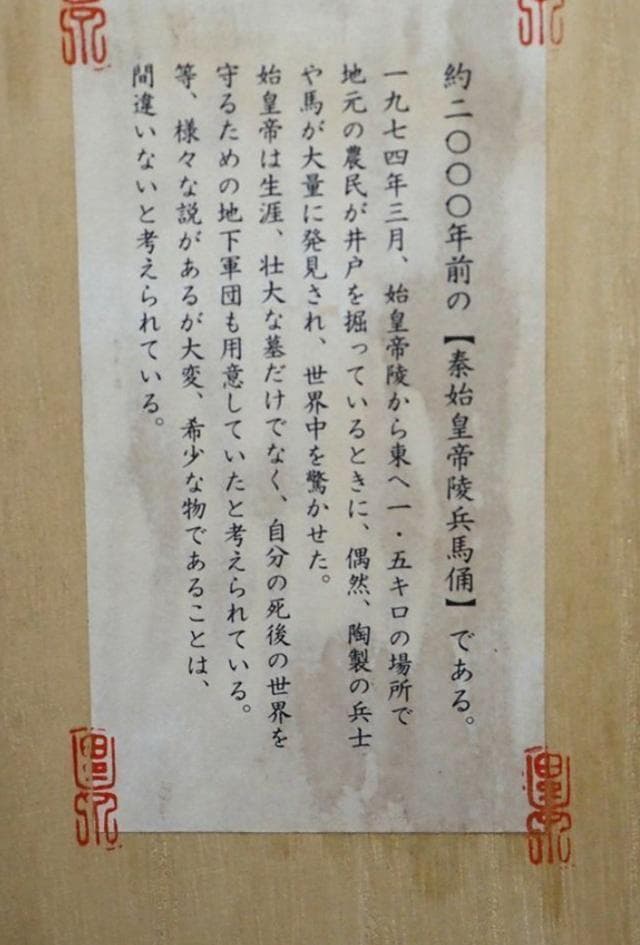 約二〇〇〇年前の【秦始皇帝陵兵馬俑】である。
一九七四年三月、始皇帝陵から東へ一・五キロの場所で
地元の農民が井戸を掘っているときに、偶然、陶製の兵士
や馬が大量に発見され、世界中を驚かせた。
始皇帝は生涯、壮大な墓だけでなく、自分の死後の世界を
守るための地下軍団も用意していたと考えられている。
等、様々な説があるが大変、希少な物であることは、
間違いないと考えられている。